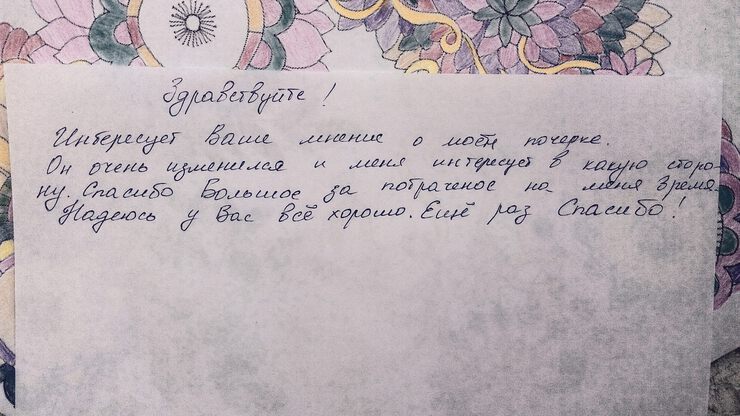 Здравствуйте!
Интересует Ваше мнение о моём почерке.
Он очень изменился и меня интересует в какую сторо-
ну. Спасибо Большое за потраченое на меня время.
Надеюсь у Вас всё хорошо. Ещё раз Спасибо!